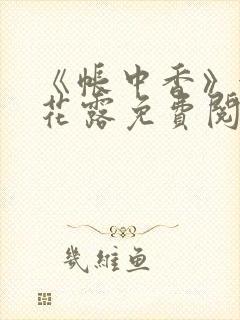 《帐中香》
花露免费阅
几维鱼